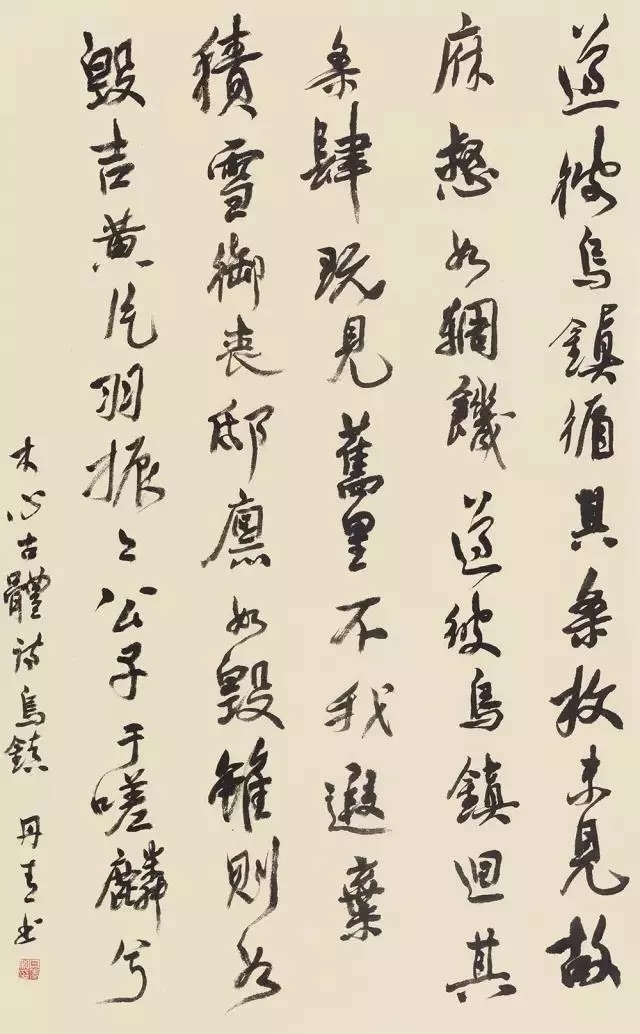 遵彼烏鎮循其条枚未見故
麻惄如輖饑遵彼烏鎮迴其
条肆既見舊里不我遐棄
積雪御喪邸廪如毀雖則如
毀吉黄片羽振々公子于嗟麟兮
木心古體詩烏鎮 丹青书